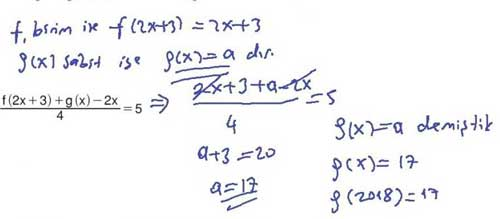 f, birim ise f(2x+3) = 2x+3
g(x) sabit ise g(x) = a dır.
(f(2x+3)+g(x)−2x)/4 = 5 ⇒ (2x+3+a−2x)/4 = 5
a+3 = 20
a = 17
g(x) = a demiştik
g(x) = 17
g(2018) = 17